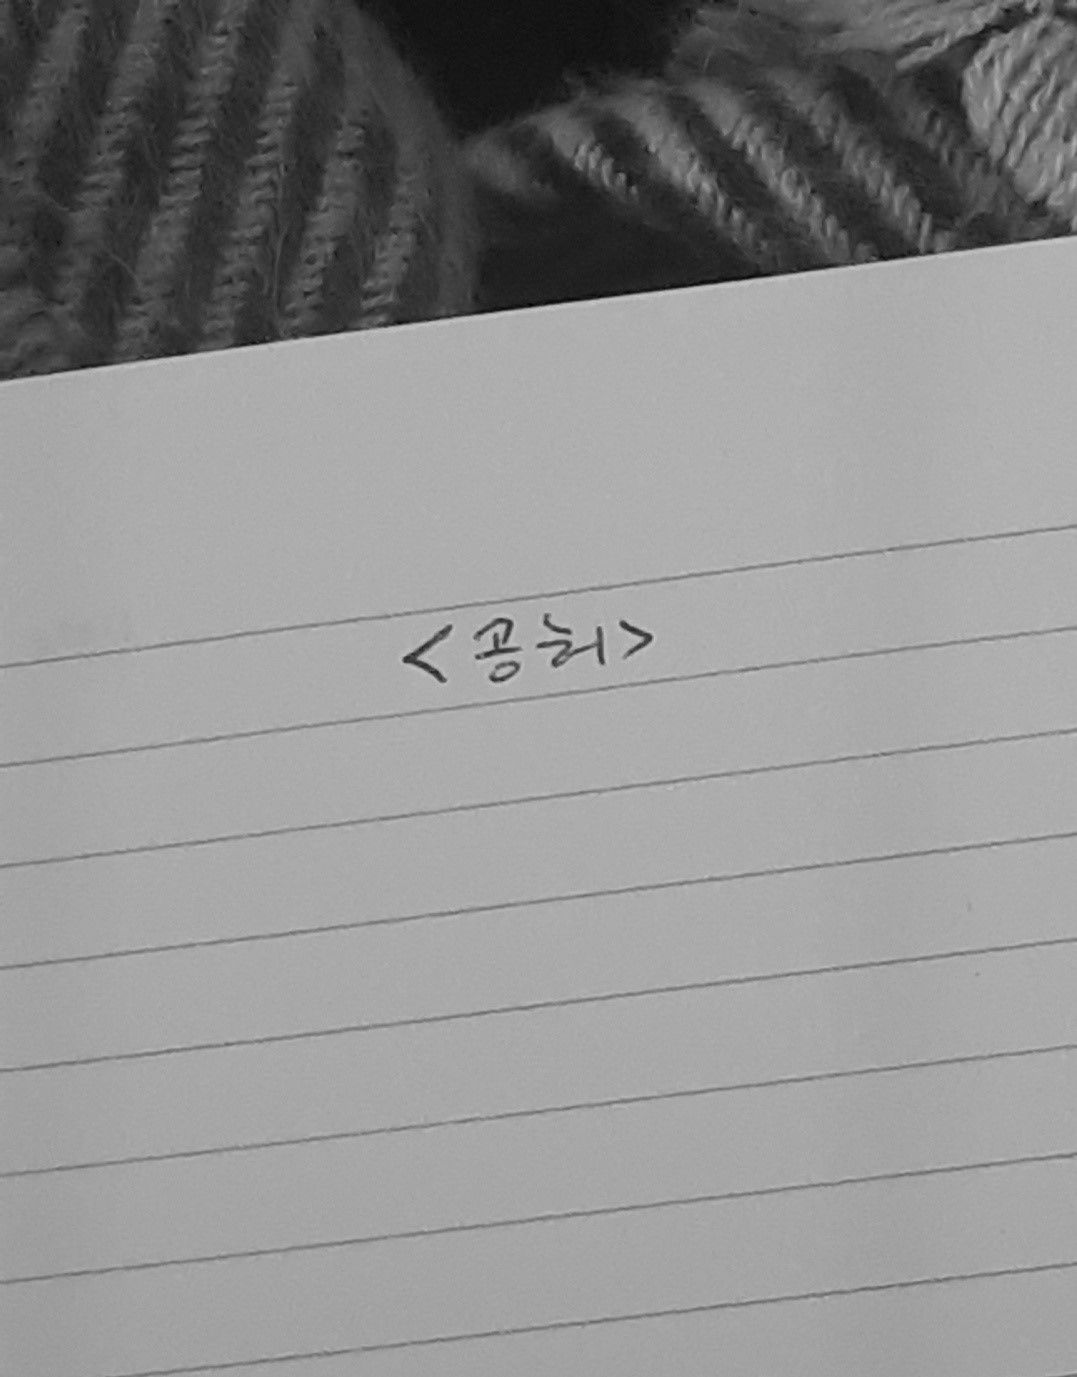 <공허>